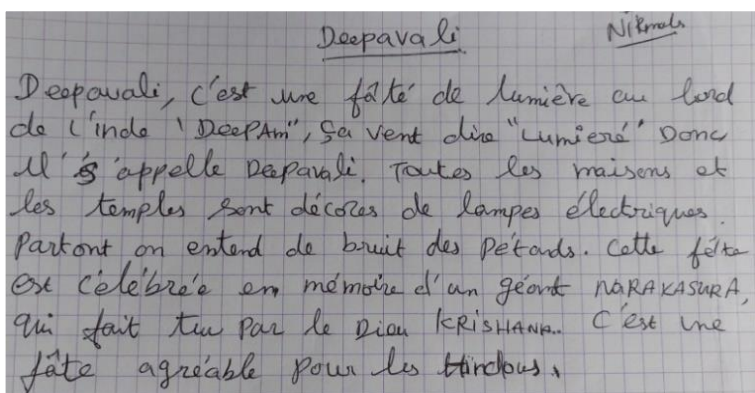 Deepavali
Nirmala
Deepavali, c'est une fâté de lumière au bord
de l'inde 'DeepAm", Sa vent dire "Lumieré" Donc
Il s'appelle Deepavali. Toutes les maisons et
les temples sont décores de lampes électriques.
Partont on entend de bruit des Pétards. Cette fête
est célébrée en mémoire d'un géant NARAKASURA,
qui fait tue par le Dieu KRISHANA. C'est une
fâte agréable pour les Hindous.